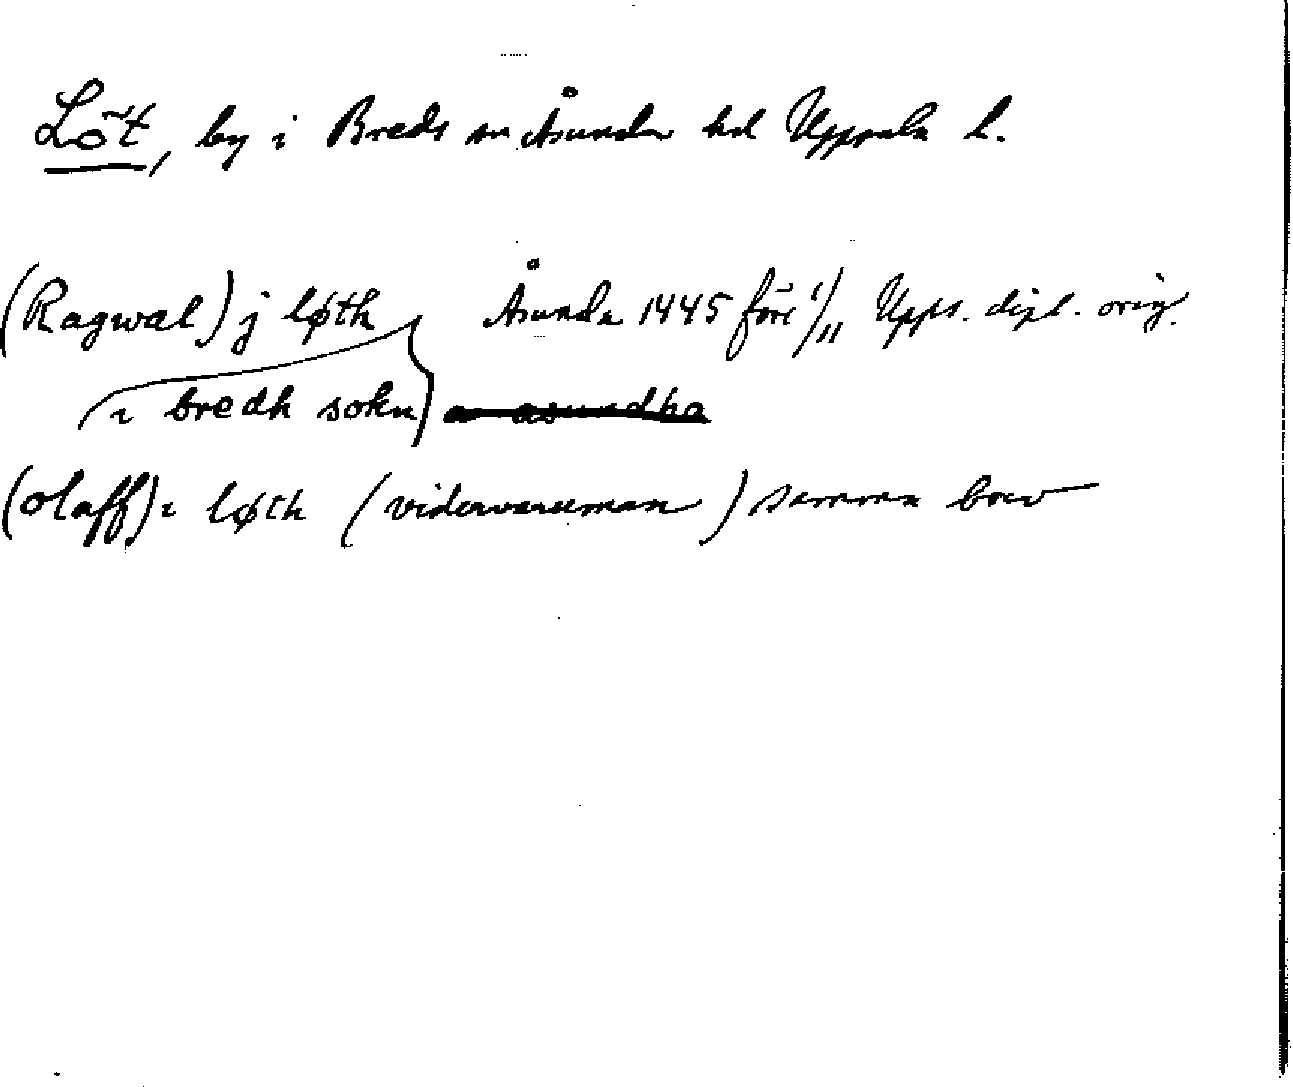 Löt, by i Breds sn Åsunda hd Uppsala l.
(Ragwal) j løth Åsunda 1445 före 1/11 Upps. dipl. orig.
i bredh sokn) a asundha
(olaff) i løth (vidervaruman) samma brev